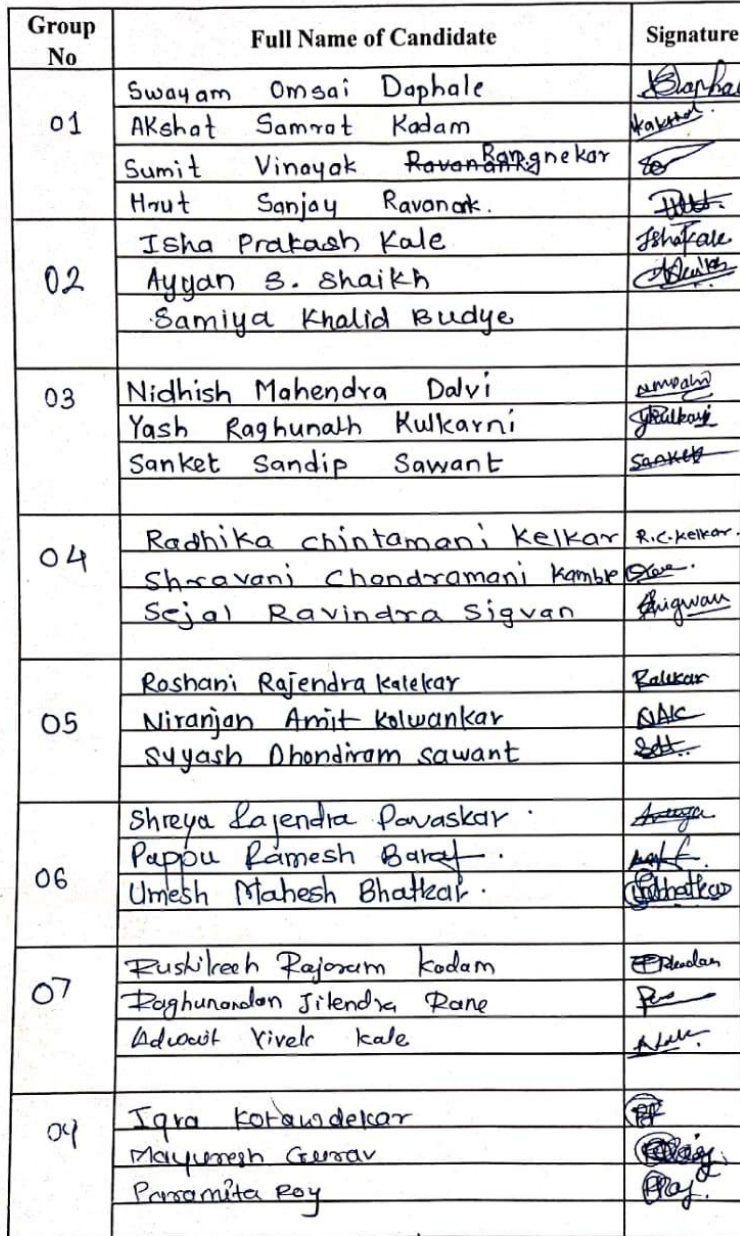 Group No Full Name of Candidate Signature
01 Swayam Omsai Daphale
Akshat Samrat Kadam
Sumit Vinayak Rangnekar
Hrut Sanjay Ravanak.
02 Isha Prakash Kale IshaKale
Ayyan S. Shaikh
Samiya Khalid Budye
03 Nidhish Mahendra Dalvi
Yash Raghunath Kulkarni YKulkarni
Sanket Sandip Sawant Sanket
04 Radhika Chintamani Kelkar R.C.Kelkar.
Shravani Chandramani Kamble
Sejal Ravindra Sigvan
05 Roshani Rajendra Kalekar
Niranjan Amit Kolwankar NAK
Suyash Dhondiram Sawant
06 Shreya Rajendra Pavaskar.
Pappu Ramesh Baraf.
Umesh Mahesh Bhatkar.
07 Rushikesh Rajaram Kadam
Raghunandan Jitendra Rane
Adwait Vivek Kale
Iqra
Mayuresh Gurav
Paromita Roy